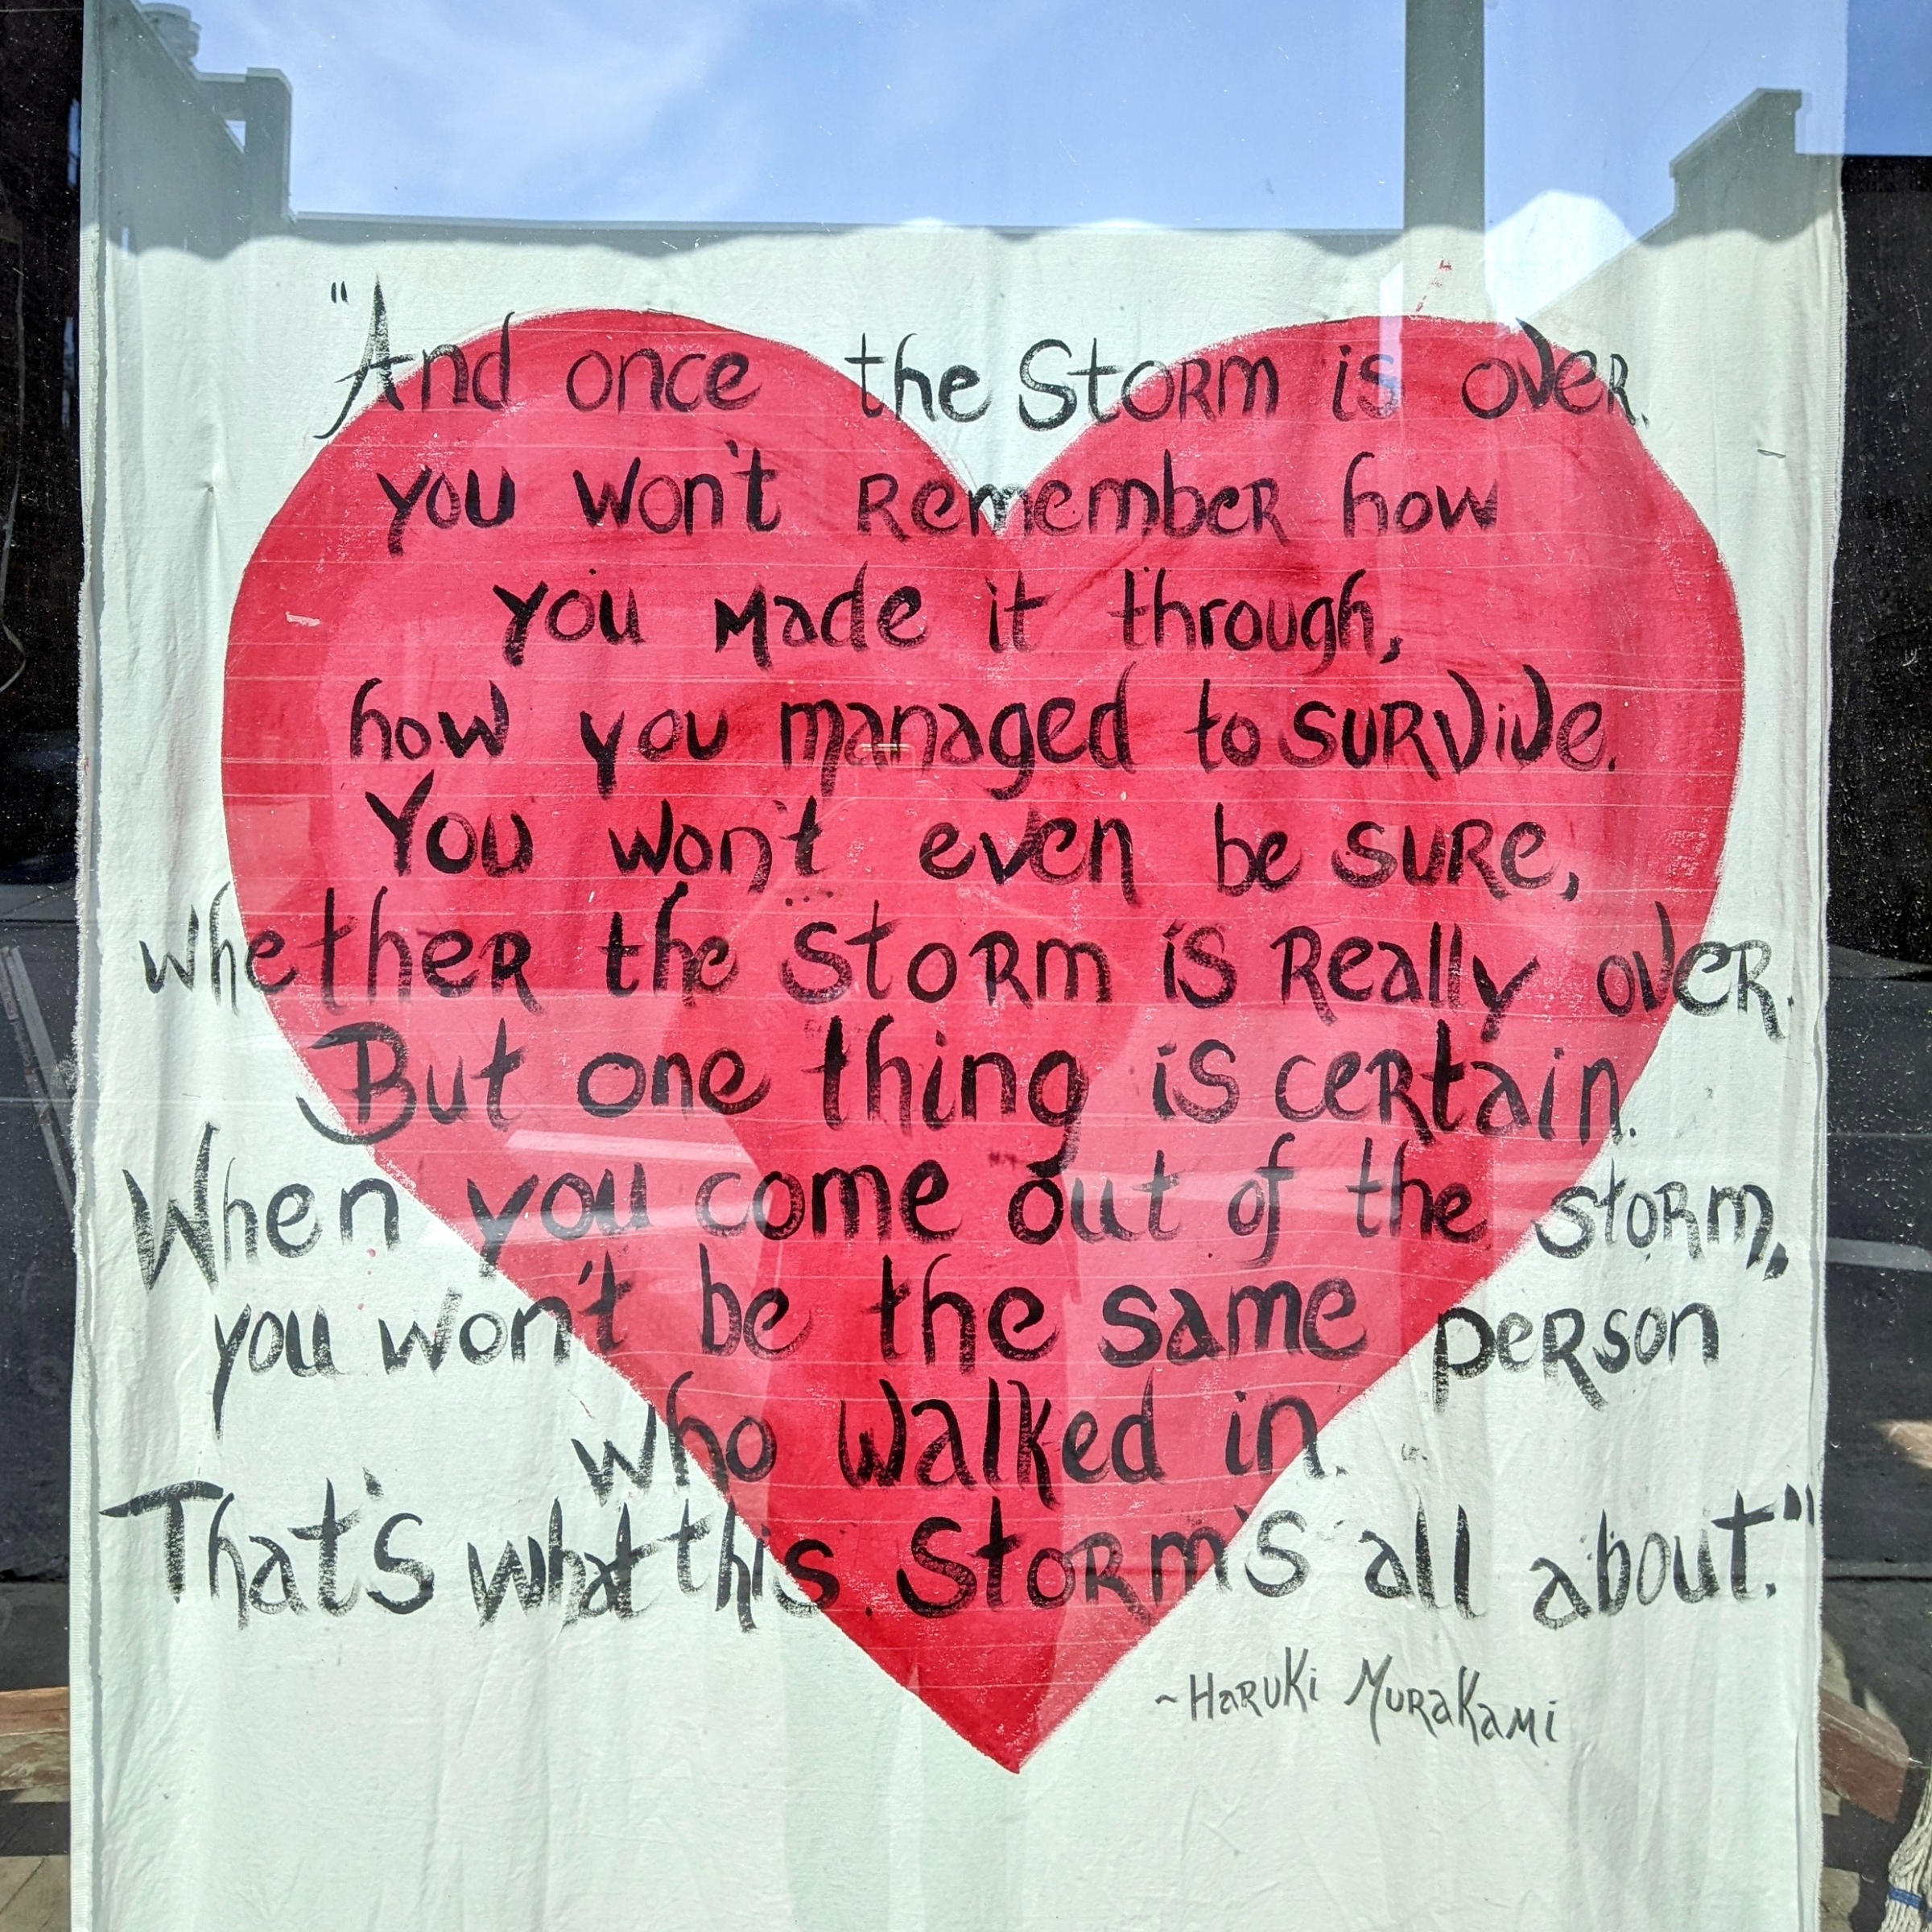 "And once the Storm is over.
you won't Remember how
you made it through,
how you managed to survive.
You won't even be sure,
whether the Storm is Really over.
But one thing is certain.
When you come out of the storm,
you won't be the same person
who walked in.
That's what this Storm's all about."
~Haruki Murakami